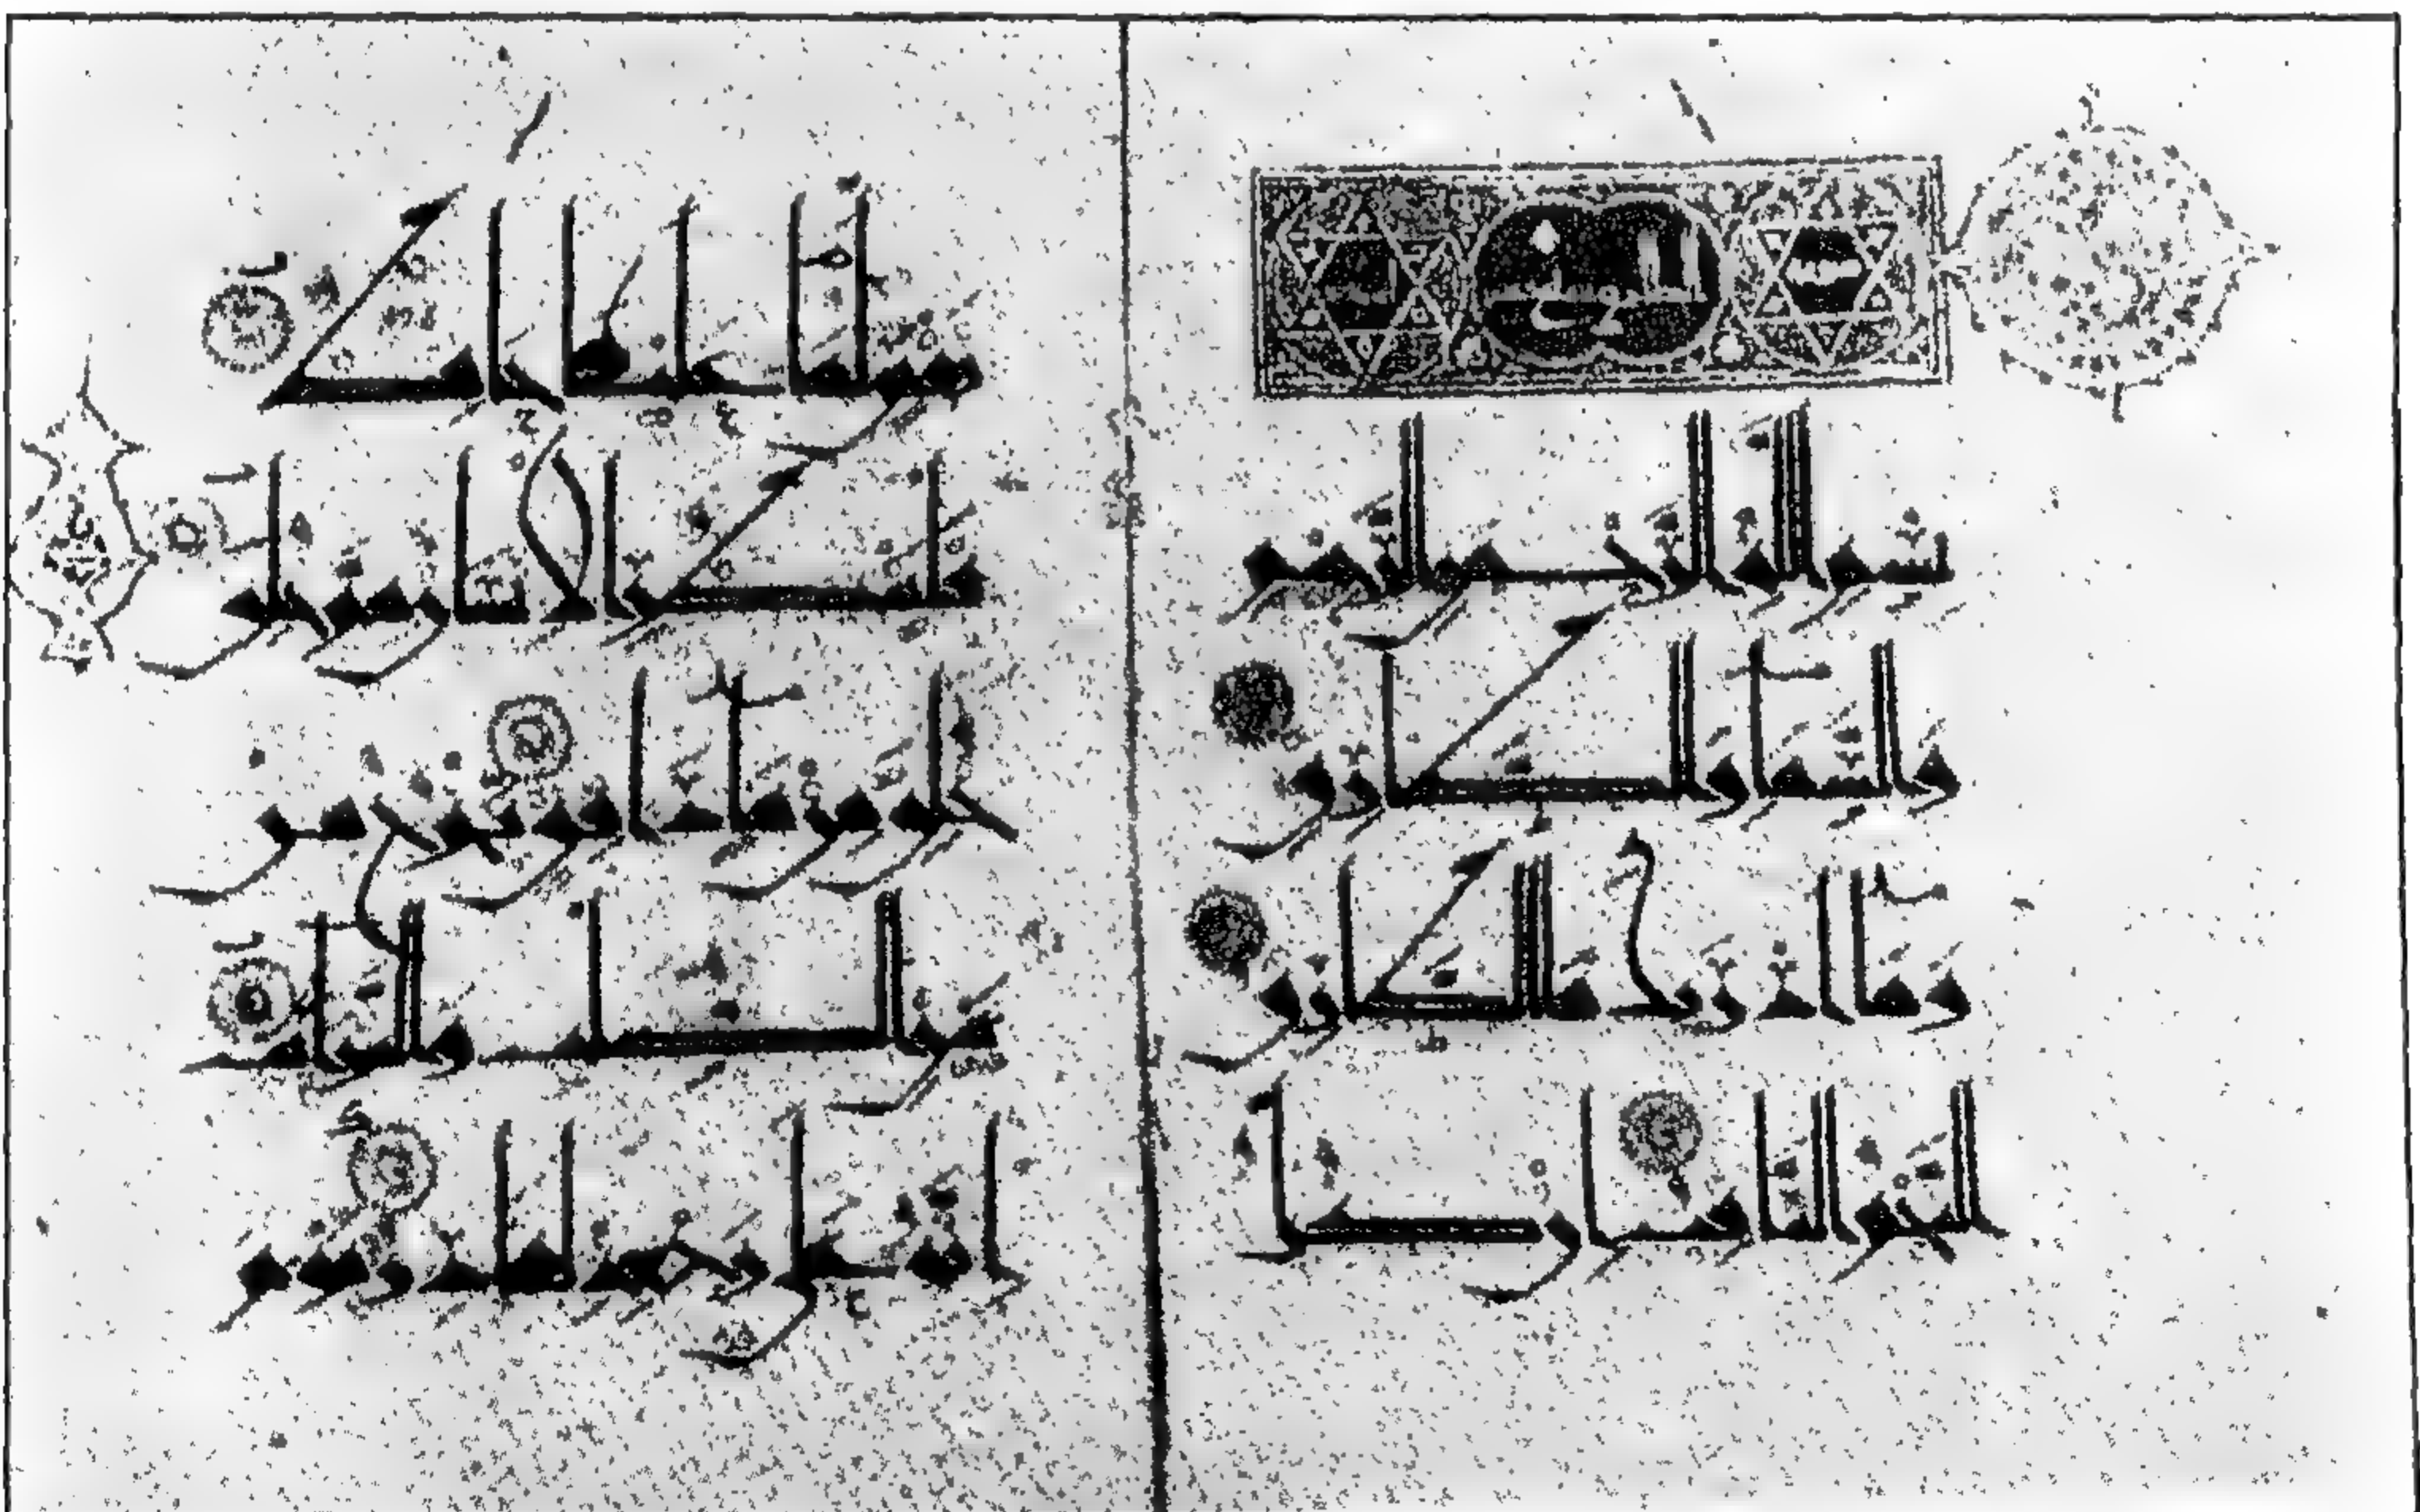 بسم الله الرحمن الرحيم
والسماء والطارق
وما ادريك ما الطارق
النجم الثاقب ان كل
نفس لما عليها حافظ
فلينظر الانسان مم خلق
خلق من ماء دافق يخرج
من بين الصلب والترائب
انه على رجعه لقادر يوم